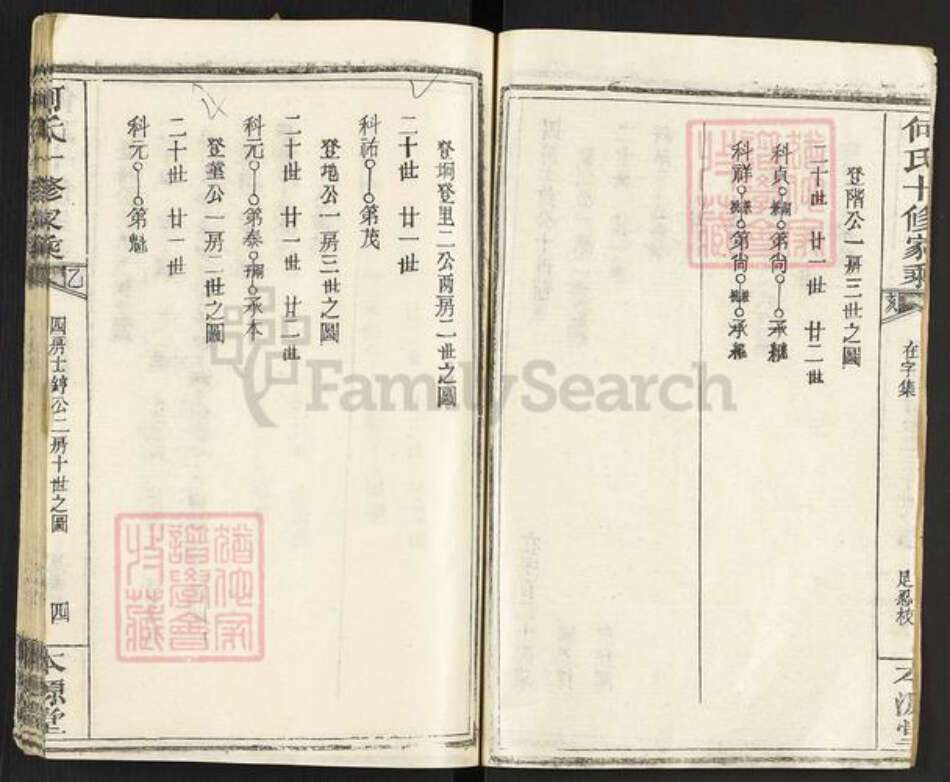 何氏十修家乘
在字集
足忍校
本源堂
登階公一房三世之圖
二十世 廿一世 廿二世
科貞 第尚 承祧
科祥 第尚 承
登垌登里二公两房二世之圖
二十世 廿一世
科祐 第茂
登地公一房三世之圖
二十世 廿一世 廿二世
科元 第泰 承本
公一房二世之圖
二十世 廿一世
科元 第魁
何氏十修家乘
四房士錞公二房十世之圖
四
本源堂
FamilySearch